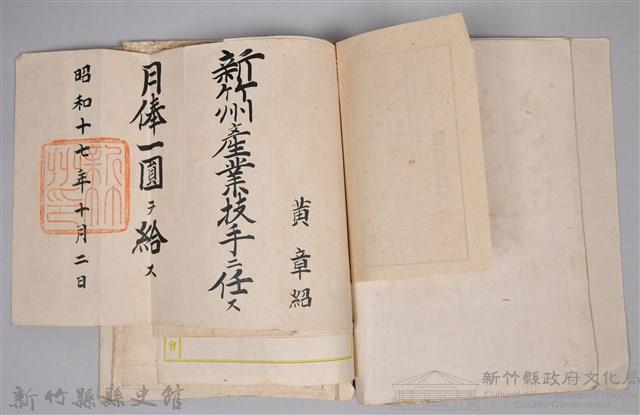 黄章紹
新竹州産業技手ニ任ス
月俸一圓ヲ給ス
昭和十七年十月二日
新竹州印
會
新竹縣縣史館
新竹縣政府文化局
Cultural Affairs Bureau of Hsinchu
County Government